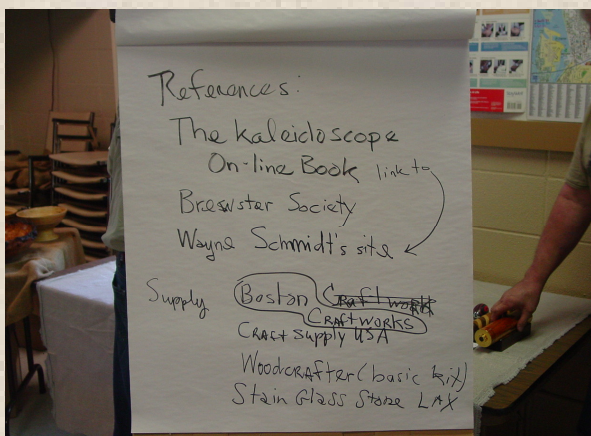 References:
The Kaleidoscope
On-line Book link to
Brewster Society
Wayne Schmidt's site
Supply Boston Craft works
Craftworks
Craft Supply USA
Woodcrafter (basic kit)
Stain Glass Store LAX